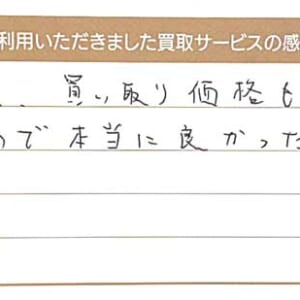 利用いただきました買取サービスの感
、買い取り価格も
ので本当に良かった